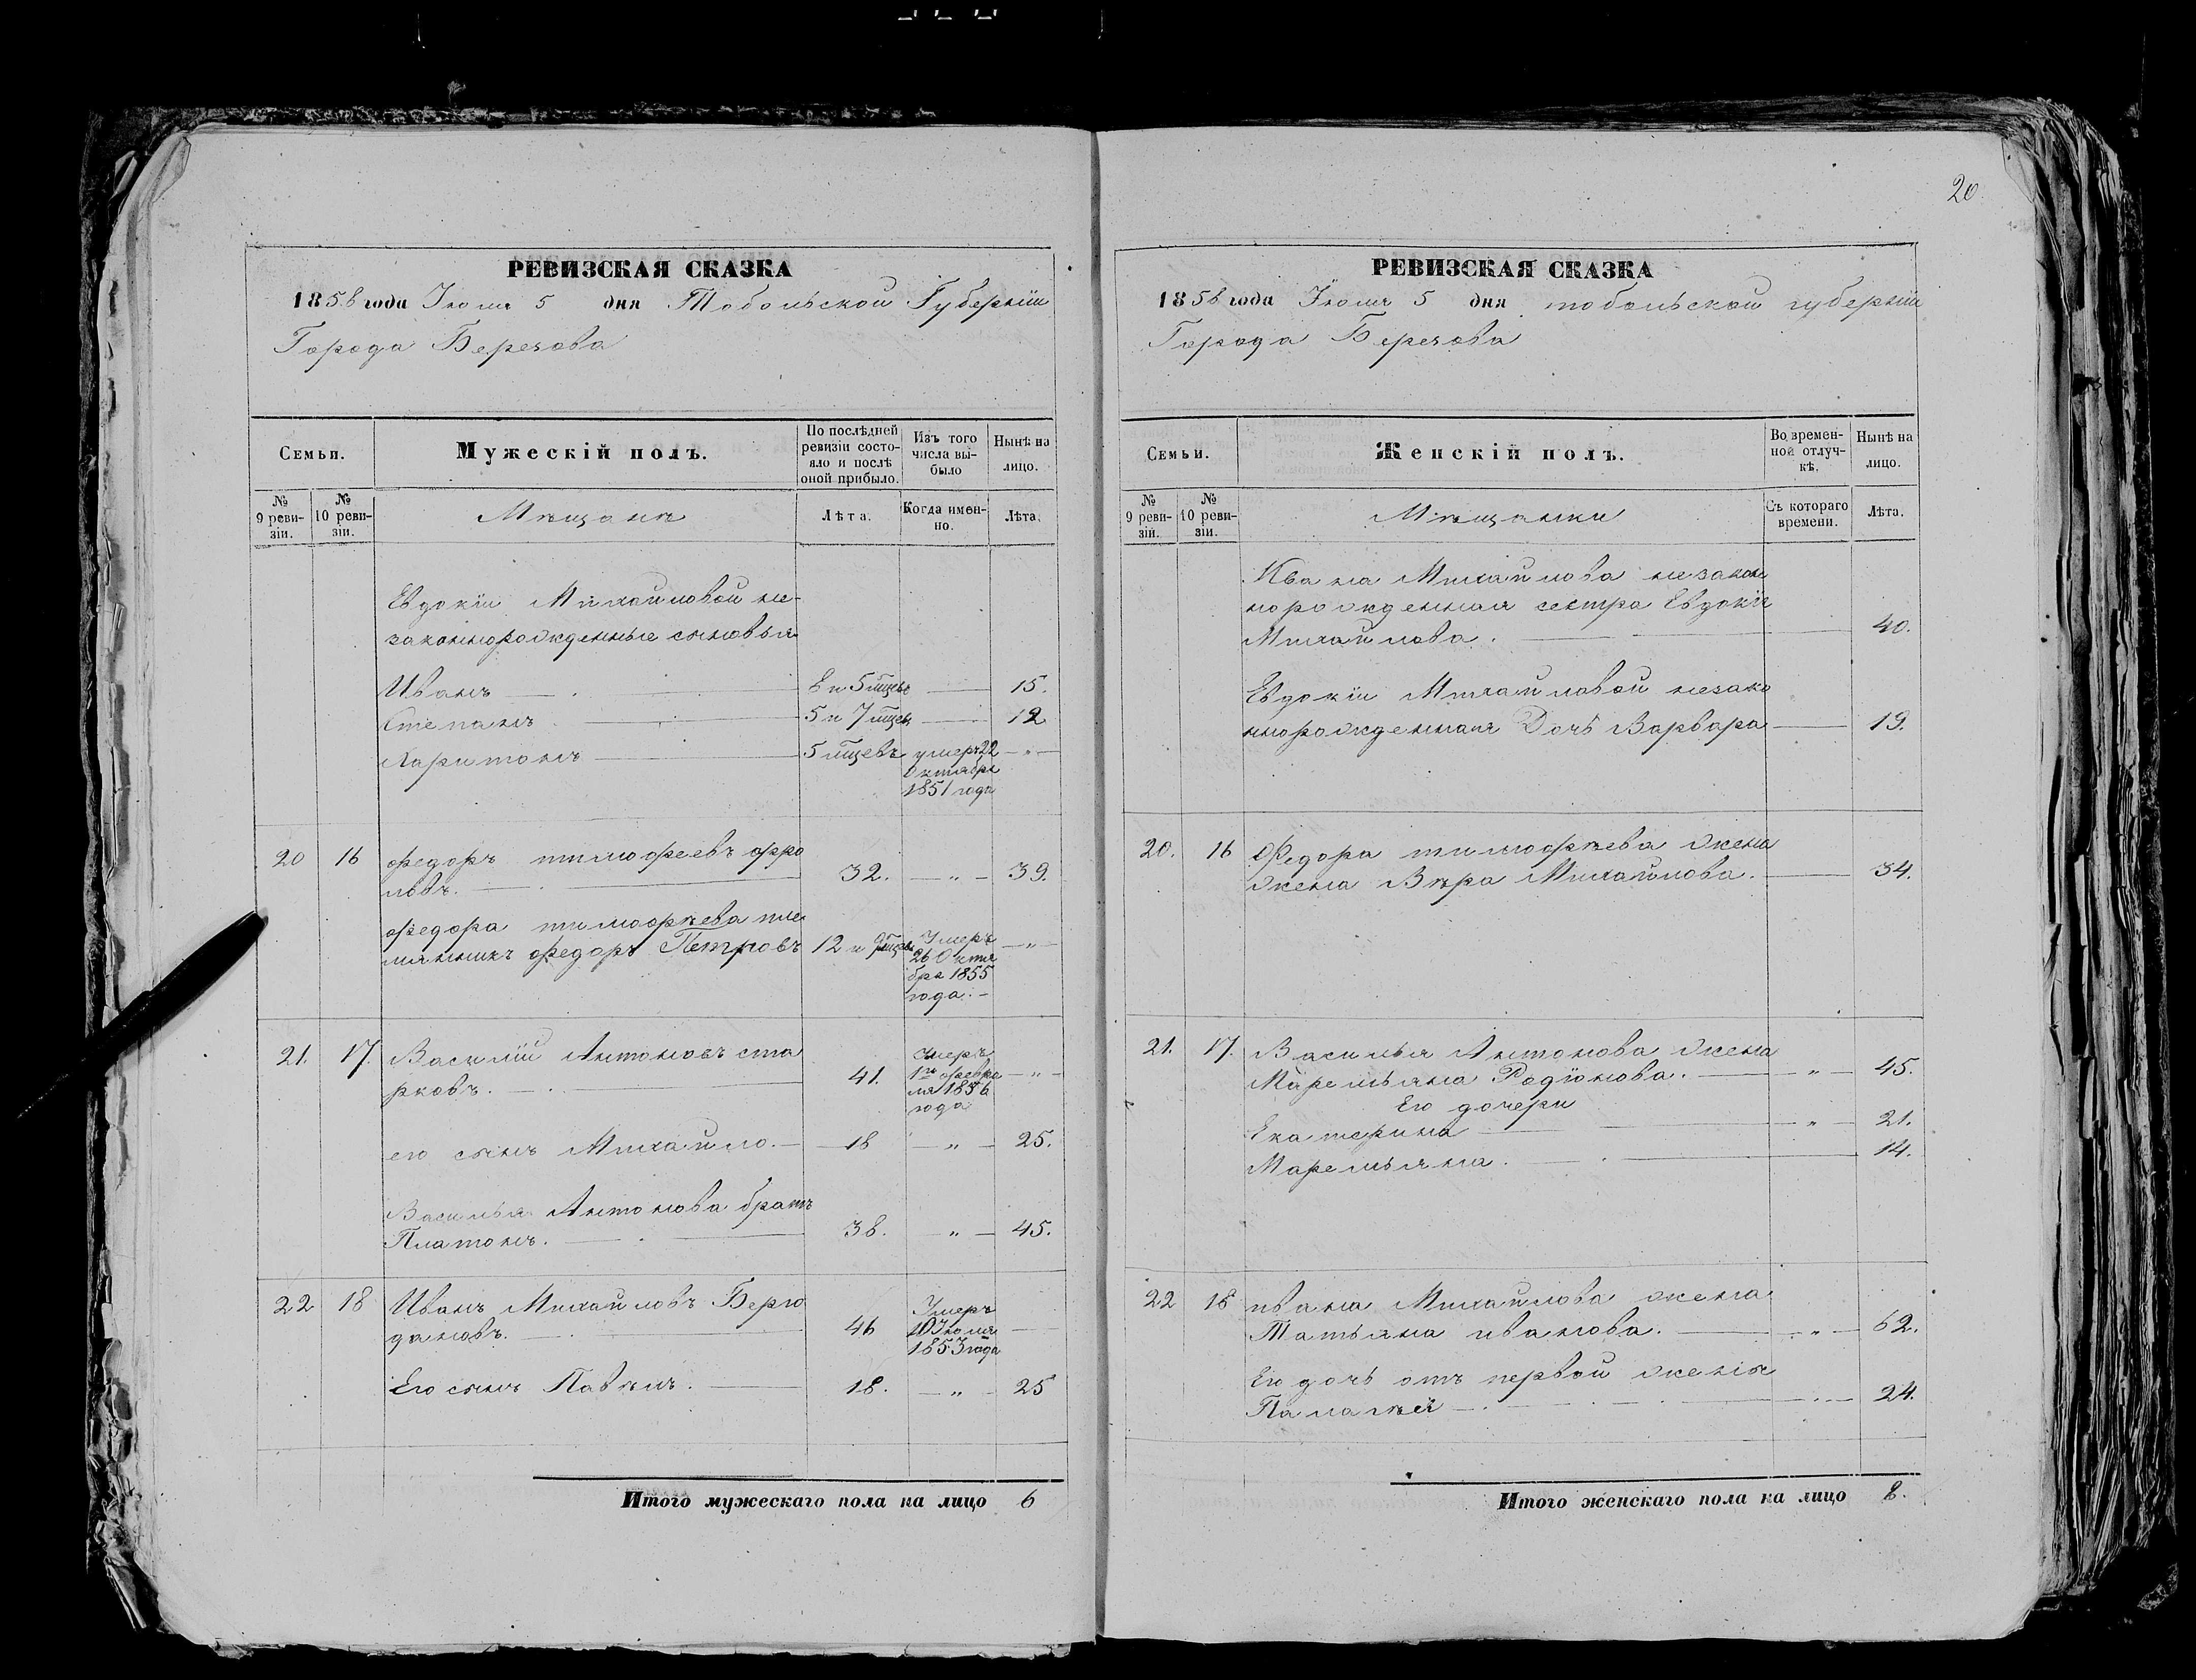 20
РЕВИЗСКАЯ СКАЗКА
1858 года Іюля 5 дня Тобольской Губерніи
Города Березова
Семьи.
Мужескій полъ.
По послѣдней ревизіи состояло и послѣ оной прибыло.
Изъ того числа выбыло
Нынѣ на лицо.
№ 9 ревизіи.
№ 10 ревизіи.
Мѣщане
Лѣта.
Когда именно.
Лѣта.
Евдокіи Михайловой не-
законнорожденные сыновья
Иванъ 8 и 5 мѣцъв 15.
Степанъ 5 и 7 мѣцъв 12
Харитонъ 5 мѣцевъ умеръ 22 „
Октября
1851 года
20 16 Федоръ тимофеевъ фро
ловъ. 32. „ 39.
Федора тимофѣева пле
мянникъ Федоръ Петровъ 12 и мѣцъв Умеръ „
26 Октя
бря 1855
года.
21. 17. Василій Антоновъ ста
рковъ. 41. Умеръ
1го февра „
ля 1856
года
его сынъ Михайло. 18 „ 25.
Василья Антонова братъ
Платонъ. 38. „ 45.
22 18 Иванъ Михайловъ Берго
дановъ. 46 Умеръ
10 Іюля
1853 года
Его сынъ Павелъ. 18. „ 25
Итого мужескаго пола на лицо 6
РЕВИЗСКАЯ СКАЗКА
1858 года Іюля 5 дня тобольской губерніи
Города Березова
Семьи.
Женскій полъ.
Во временной отлучкѣ.
Нынѣ на лицо.
№ 9 ревизіи.
№ 10 ревизіи.
Мѣщанки
Съ котораго времени.
Лѣта.
Ивана Михайлова незакон
норожденная сестра Евдокія
Михайлова. 40.
Евдокіи Михайловой незако
ннорожденная Дочь Варвара 19.
20. 16 Федора тимофѣева жена
жена Вѣра Михайлова. 34.
21. 17. Василья Антонова жена
Маремьяна Родіонова. „ 45.
Его дочери
Екатерина „ 21.
Маремьяна. 14.
22 18 ивана Михайлова жена
Татьяна иванова. „ 62.
Его дочь отъ первой жены
Палагѣя „ 24.
Итого женскаго пола на лицо 8.